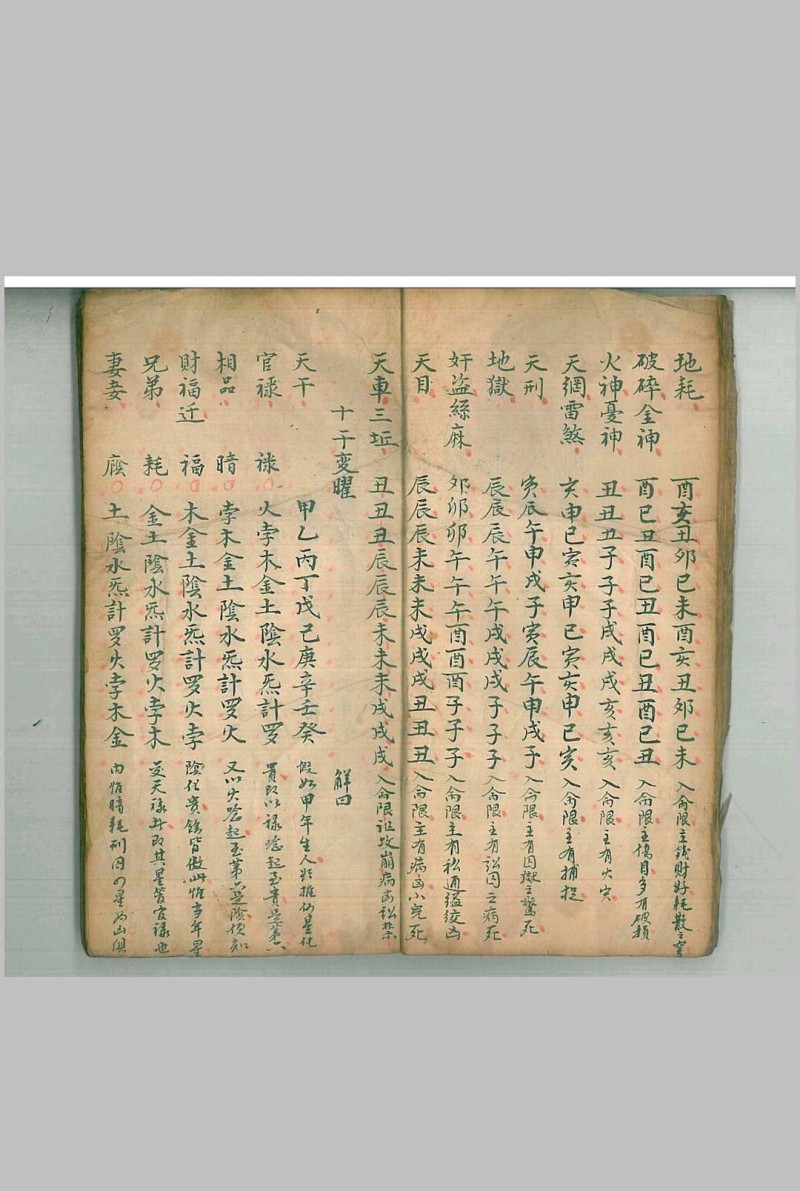 地耗 酉亥丑卯巳未酉亥丑卯巳未 入命限主錢財好耗散之
破碎金神 酉巳丑酉巳丑酉巳丑酉巳丑 入命限主傷目多有破損
火神憂神 丑丑丑子子子戌戌戌亥亥亥 入命限主有火灾
天綱雷煞 亥申巳寅亥申巳寅亥申巳寅 入命限主有捕捉
天刑 寅辰午申戌子寅辰午申戌子 入命限主有囚獄之驚死
地獄 辰辰辰午午午戌戌戌子子子 入命限主有訟囚之病死
奸盜絲麻 卯卯卯午午午酉酉酉子子子 入命限主有私通縊絞凶
天目 辰辰辰未未未戌戌戌丑丑丑 入命限主有病凶小兒死
天車三坵 丑丑丑辰辰辰未未未戌戌戌 入命限崩病凶訟
十干变曜 解曰
天干 甲乙丙丁戊己庚辛壬癸 假如甲年生人於推何星化
官祿 祿 火孛木金土陰水炁計罗 貴即以祿唸起至貴是第六
相品 暗 孛木金土陰水炁計罗火 又以火唸起至第六是陰便知
財福迁 福 木金土陰水炁計罗火孛 陰化貴餘皆倣此惟當年
兄弟 耗 金土陰水炁計罗火孛木 天祿此即其星管官祿也
妻妾 廕 土陰水炁計罗火孛木金 内惟暗耗刑囚四星為凶